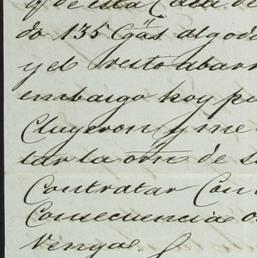 q. de esta Casa de
do 135 Cjas algodo
y el resto abarr
embargo hoy pu
Cluyeron y me
tar la orn de S
Contratar Con
Consecuencia o
Vengae.